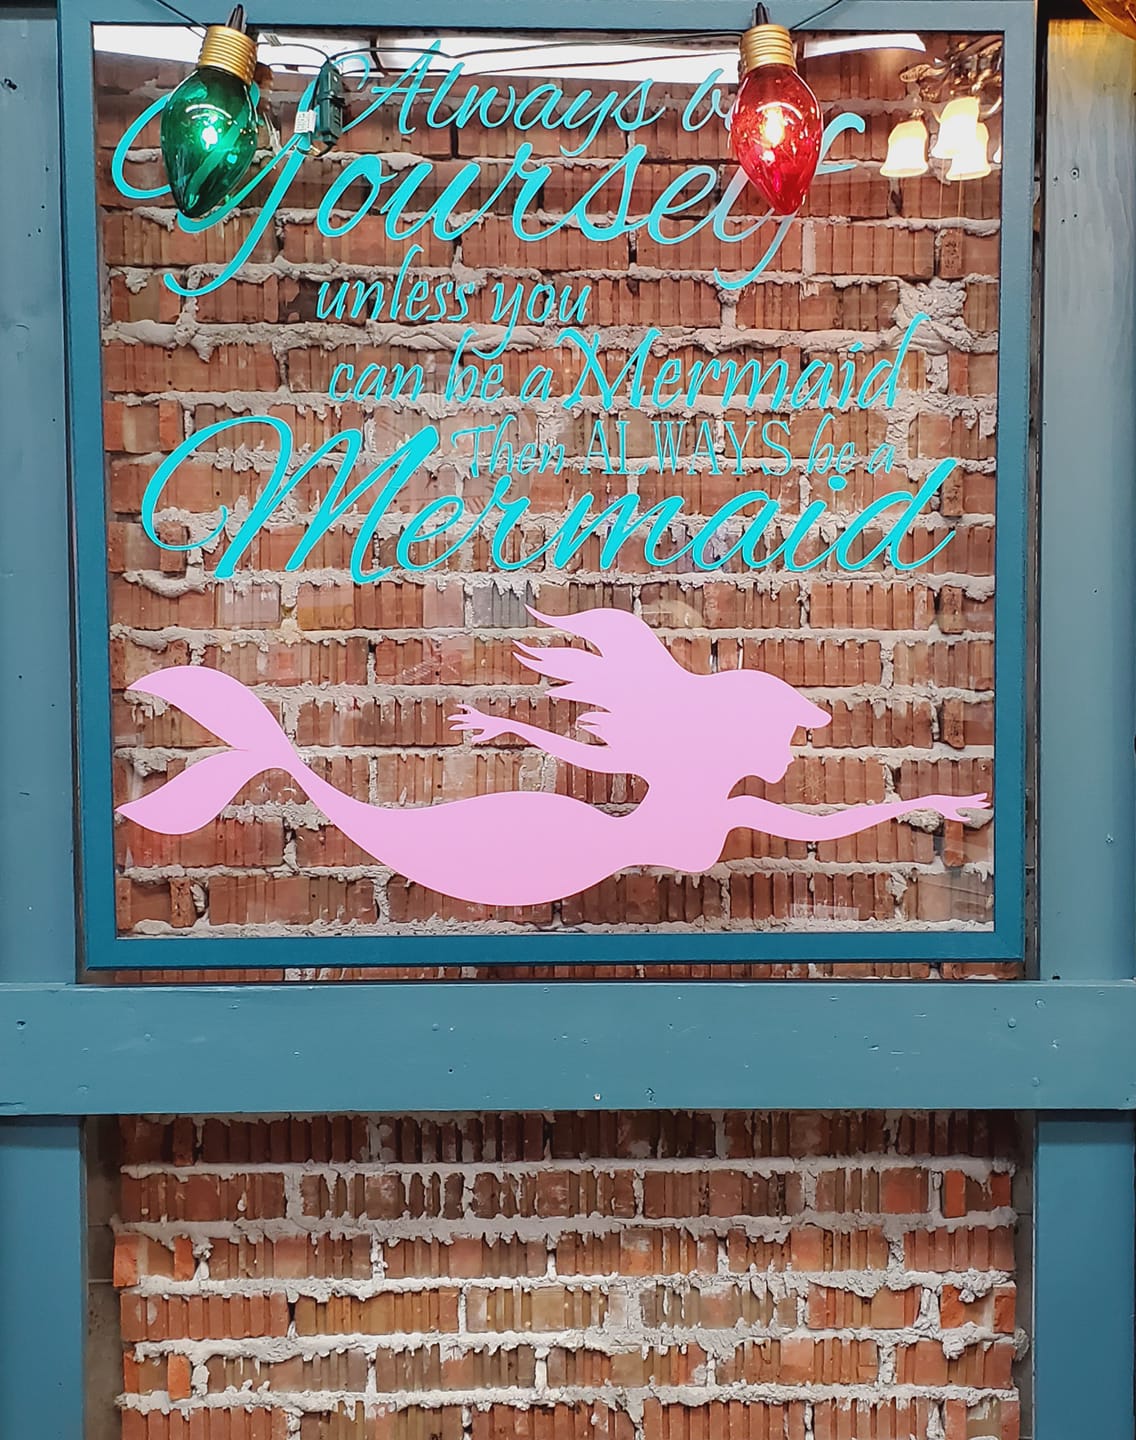 Always be
Yourself
unless you
can be a Mermaid
Then ALWAYS be a
Mermaid